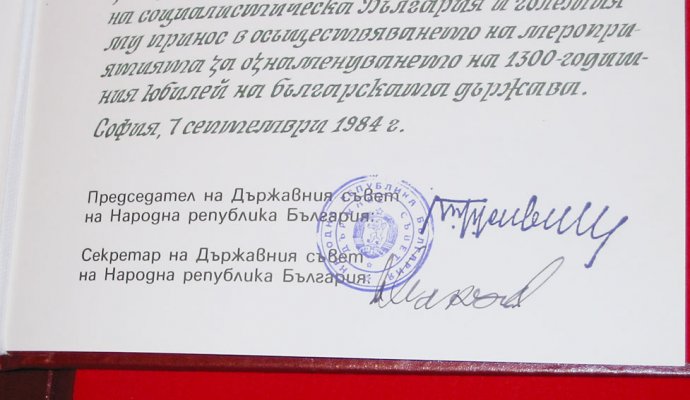 на социалистическа България и големия
му принос в осъществяването на меропри-
ятията за ознаменуването на 1300-годиш-
ния юбилей на българската държава.
София, 7 септември 1984 г.
Председател на Държавния съвет
на Народна република България:
Секретар на Държавния съвет
на Народна република България:
НАРОДНА РЕПУБЛИКА БЪЛГАРИЯ
ДЪРЖАВЕН СЪВЕТ